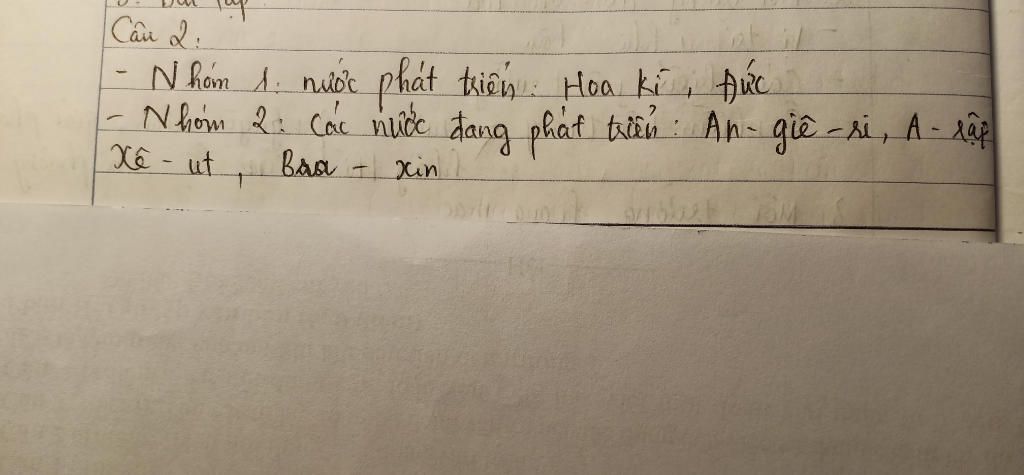 3. Bài tập
Câu 2:
- Nhóm 1: nước phát triển: Hoa Kì, Đức
- Nhóm 2: Các nước đang phát triển: An-giê-ri, A-rập
Xê-ut, Bra-xin